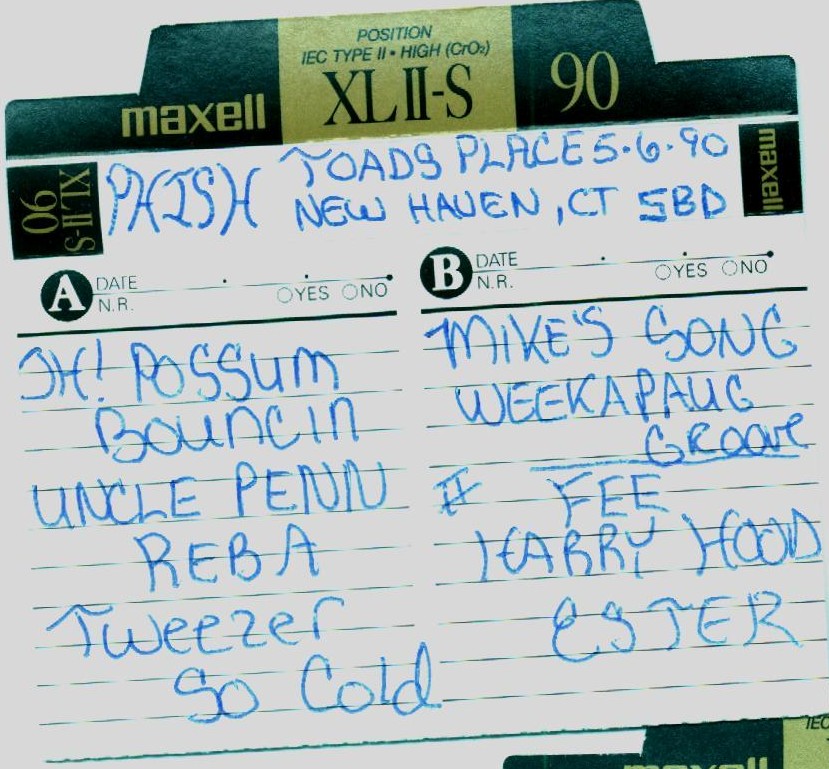 POSITION
IEC TYPE II • HIGH (CrO₂)
maxell XLII-S 90
PHISH TOADS PLACE 5·6·90
NEW HAVEN, CT SBD
maxell
XLII-S
90
A DATE
N.R. YES NO
B DATE
N.R. YES NO
OH! POSSUM
BOUNCIN
UNCLE PENN
REBA
Tweezer
So Cold
MIKE'S SONG
WEEKAPAUG
GROOVE
II FEE
HARRY HOOD
ESTER
IEC
maxell